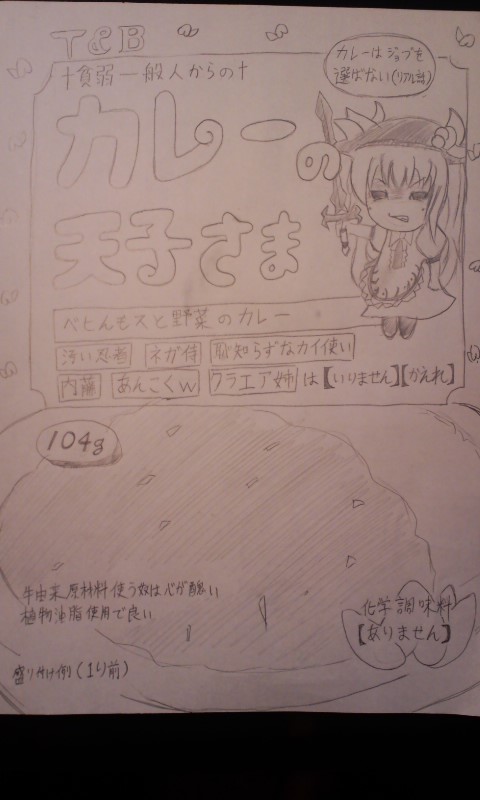 T&B
†貧弱一般人からの†
カレーはジョブを
選ばない(リアル話)
カレーの
天子さま
べヒんもスと野菜のカレー
汚い忍者 ネガ侍 恥知らずなカイ使い
内藤 あんこくw クラエア姉 は【いりません】【かえれ】
104g
牛由来原材料使う奴は心が醜い
植物油脂使用で良い
化学調味料
【ありません】
盛り付け例(1り前)